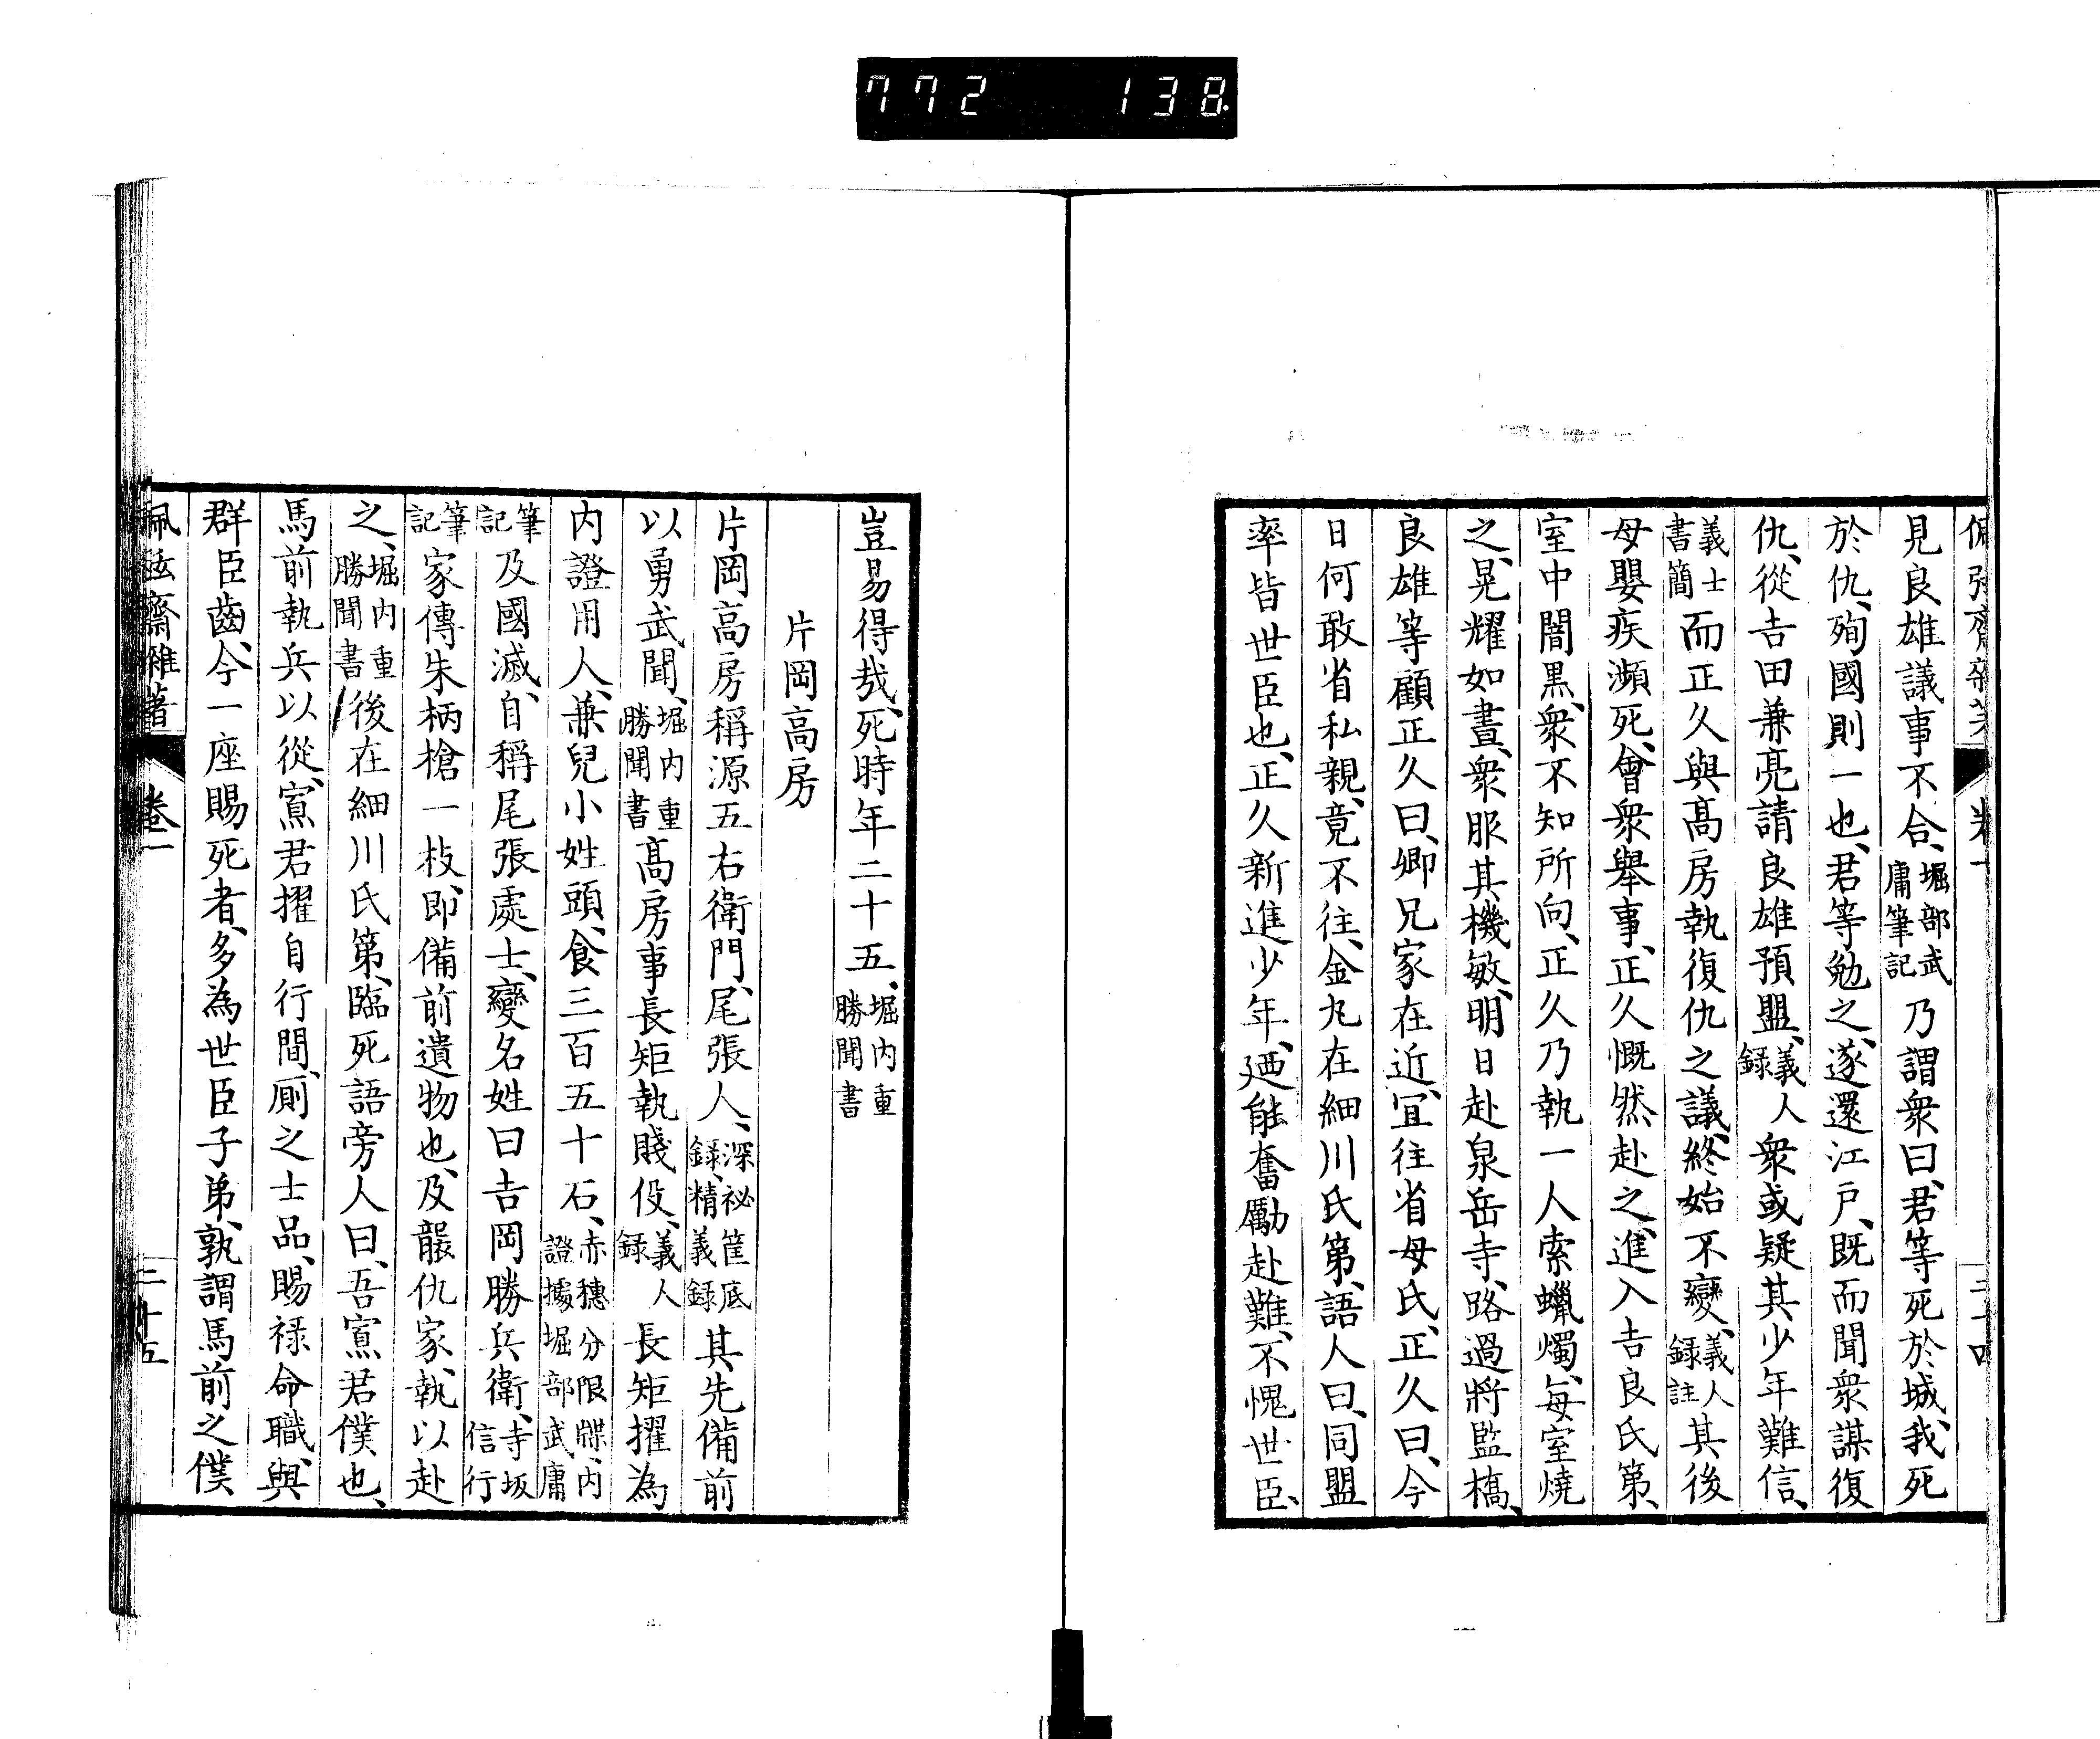 772 138
見良雄議事不合、堀部武庸筆記乃謂衆曰、君等死於城、我死
於仇、殉國則一也、君等勉之、遂還江戸、既而聞衆謀復
仇、從吉田兼亮請良雄預盟、義人録衆或疑其少年難信、
義士書簡而正久與髙房執復仇之議、終始不變、義人録註其後
母嬰疾瀕死、會衆舉事、正久慨然赴之、進入吉良氏第、
室中闇黒、衆不知所向、正久乃執一人索蠟燭、毎室燒
之、晃耀如晝、衆服其機敏、明日赴泉岳寺、路過將監橋、
良雄等顧正久曰、卿兄家在近、宜往省母氏、正久曰、今
日何敢省私親、竟不往、金丸在細川氏第、語人曰、同盟
率皆世臣也、正久新進少年、廼能奮勵赴難、不愧世臣、
豈易得哉、死時年二十五、堀内重勝聞書
片岡高房
片岡高房稱源五右衛門、尾張人、深祕筐底録、精義録其先備前
以勇武聞、堀内重勝聞書髙房事長矩執賤役、義人録長矩擢為
内證用人、兼兒小姓頭、食三百五十石、赤穗分限牒、内證據堀部武庸
筆記及國滅、自稱尾張處士、變名姓曰吉岡勝兵衛、寺坂信行
筆記家傳朱柄槍一枝、即備前遺物也、及襲仇家、執以赴
之、堀内重勝聞書後在細川氏第、臨死語旁人曰、吾寡君僕也、
馬前執兵以從、寡君擢自行間、厠之士品、賜祿命職、與
群臣齒、今一座賜死者、多為世臣子弟、孰謂馬前之僕
齋雜著 卷一 二十五